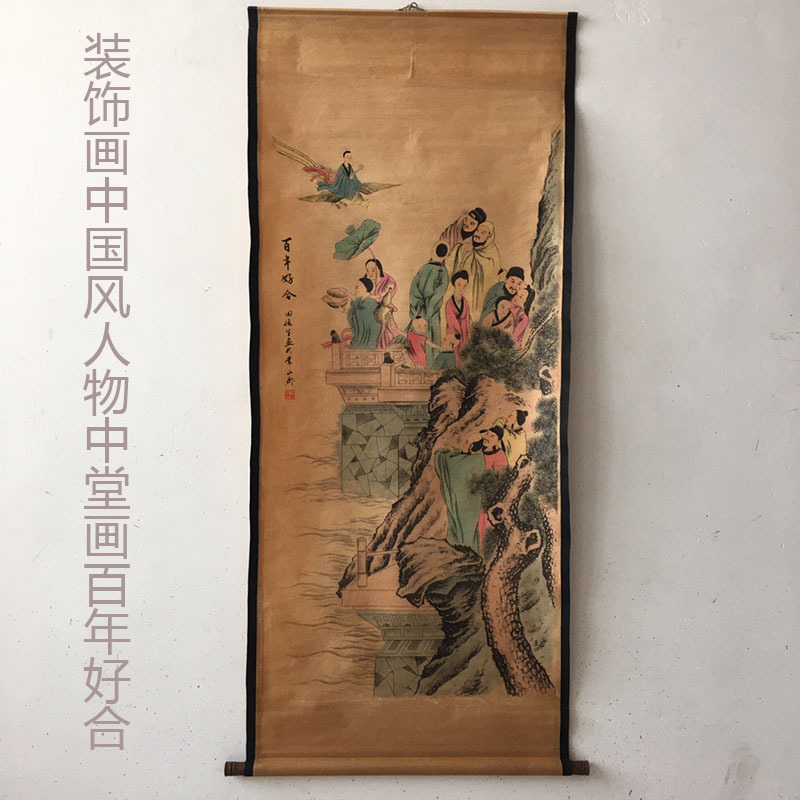 装饰画中国风人物中堂画百年好合
百年好合